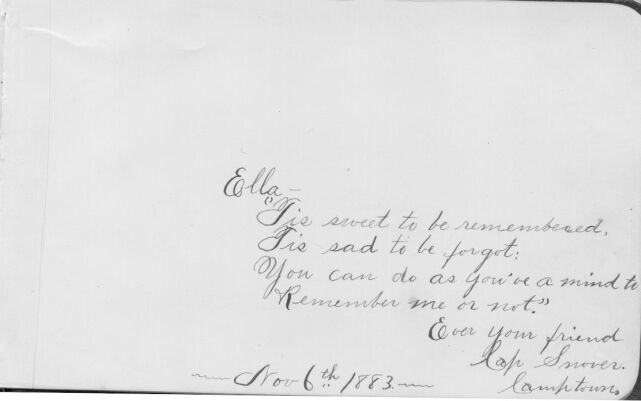 Ella –
"Tis sweet to be remembered,
Tis sad to be forgot;
You can do as you've a mind to
Remember me or not."
Ever your friend
Cap Snover.
Camptown,
Nov 6th 1883